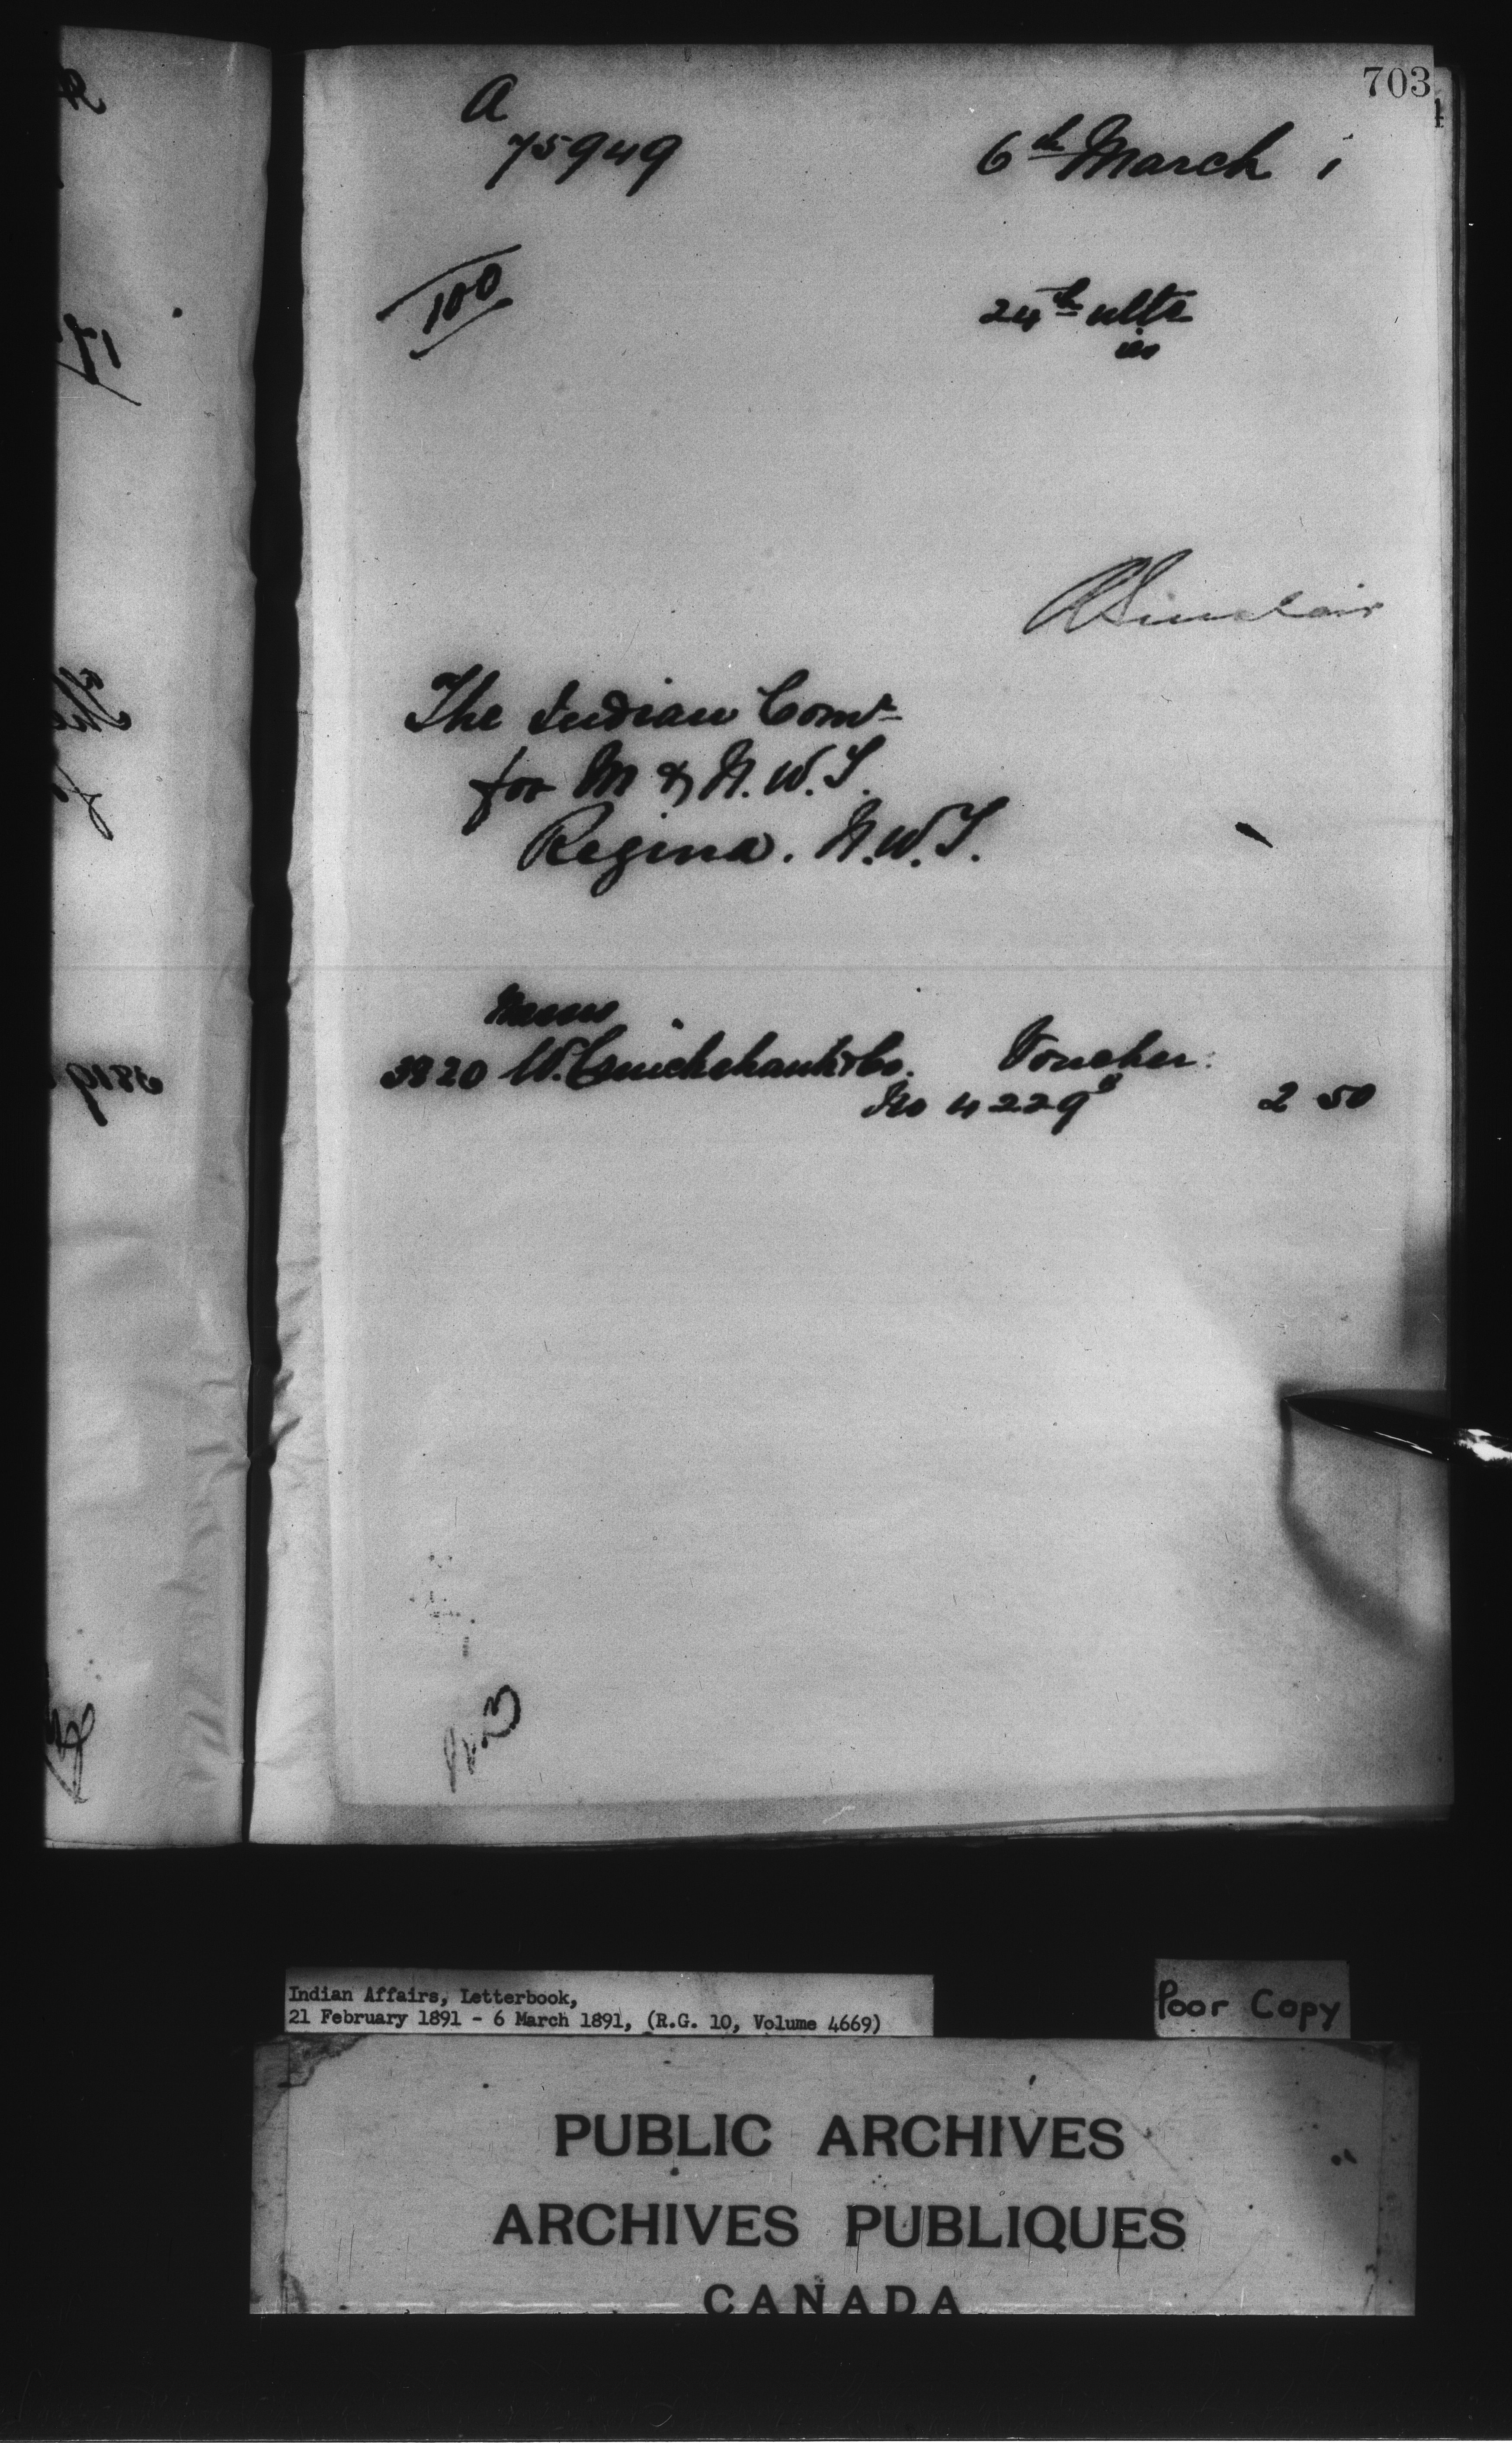 703
A
75949
6th March 1
100
24th ulto
is
R Sinclair
The Indian Comr
for M & N.W.T.
Regina. N.W.T.
Messrs
3820 W. Cruickshank & Co. Voucher
No 4229 2 50
Indian Affairs, Letterbook,
21 February 1891 - 6 March 1891, (R.G. 10, Volume 4669)
Poor Copy
PUBLIC ARCHIVES
ARCHIVES PUBLIQUES
CANADA